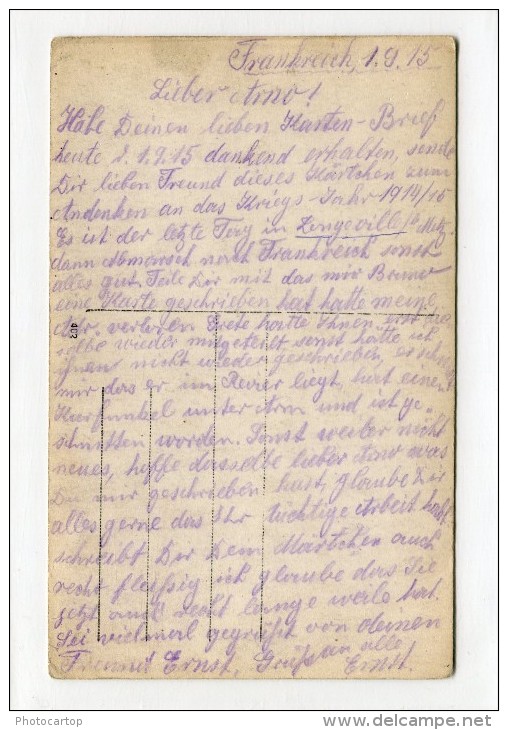 Frankreich, 1.9.15
Lieber Arno!
Habe Deinen lieben Karten-Brief
heute d. 1.9.15 dankend erhalten, sende
Dir lieben Freund dieses Kärtchen zum
Andenken an das Kriegs-Jahr 1914/15
Es ist der letzte Tag in Longeville b. Metz
dann Abmarsch nach Frankreich sonst
alles gut. Teile Dir mit das mir Bruno
eine Karte geschrieben hat hatte meine
Adr. verloren Grete hatte Ihnen erst
selbe wieder mitgeteilt sonst hätte ich
Ihnen nicht wieder geschrieben, er schreibt
mir das er im Revier liegt, hat einen
Karfunkel unter Arm und ist ge-
schnitten worden. Sonst weiter nicht
neues, hoffe dasselbe lieber Arno was
Du mir geschrieben hast, glaube Dir
alles gerne das Ihr tüchtige Arbeit habt
schreibt Dir Dein Martchen auch
recht fleißig ich glaube das Sie
jetzt auch recht lange weile hat.
Sei vielmal gegrüßt von deinen
Freund Ernst, Grüße an alle
Ernst.
403
Photocartop
www.delcampe.net